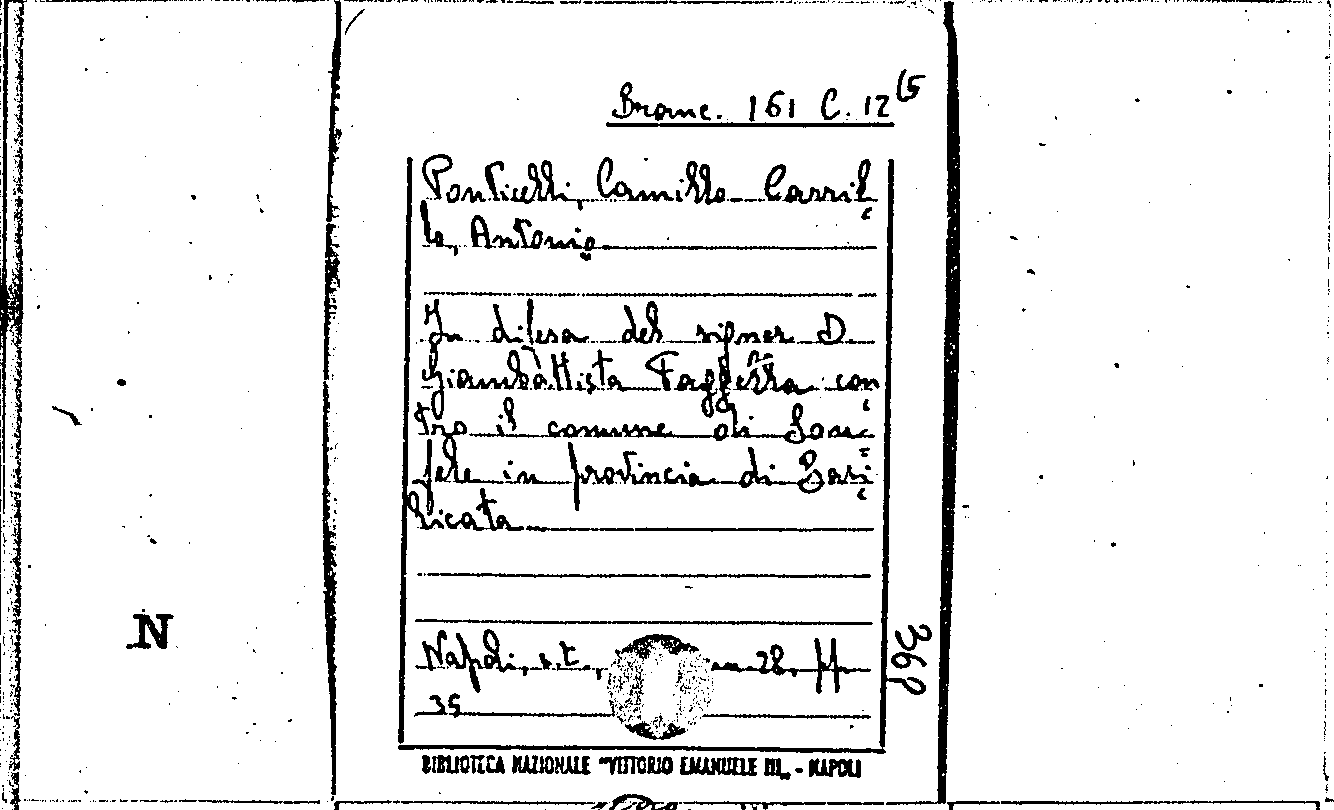 Branc. 161 C. 12 (5
Ponticelli, Camillo - Carril=
lo, Antonio
In difesa del signor D.
Giambattista con=
tro il comune di San=
fele in provincia di Basi=
licata
Napoli, s.t., 28, pp
35
368
N
BIBLIOTECA NAZIONALE "VITTORIO EMANUELE III„ - NAPOLI